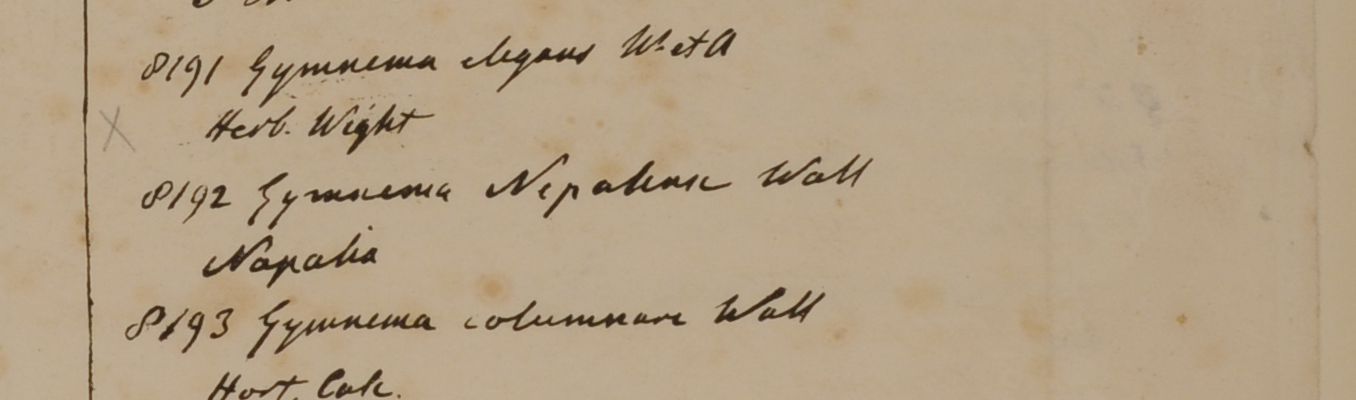 8191 Gymnema elegans W. et A
Herb. Wight
8192 Gymnema Nepalense Wall
Napalia
8193 Gymnema columnare Wall
Hort. Calc.